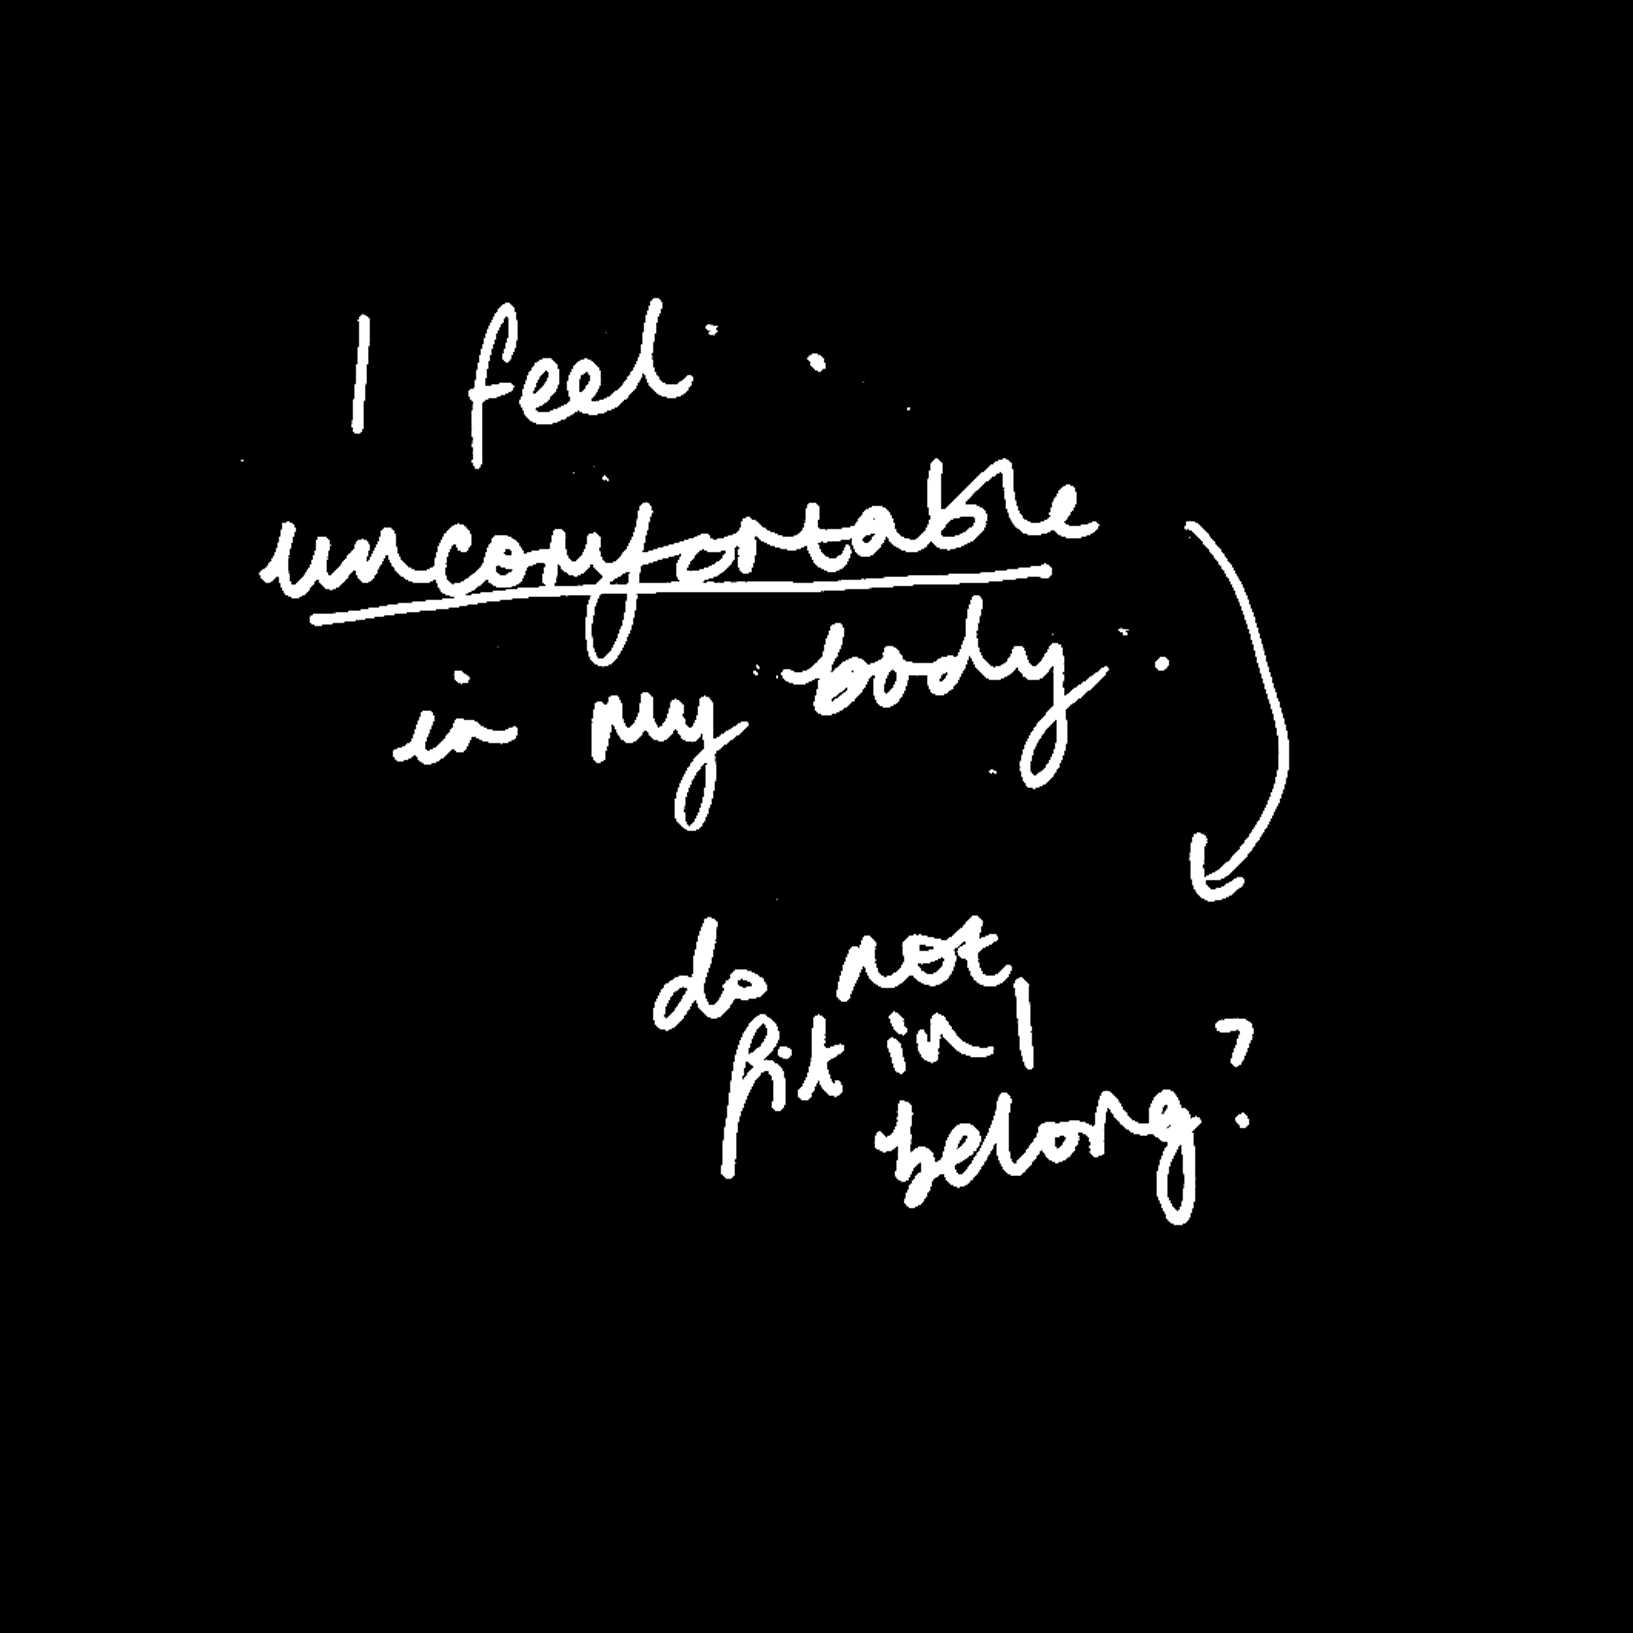 I feel
uncomfortable
in my body.
do not
fit in/
belong?